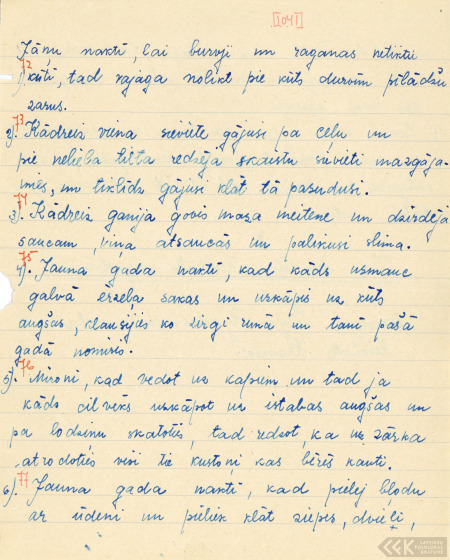 [1041]
Jāņu naktī, lai burvji un raganas netiktu
72
1). kūtī, tad vajaga nolikt pie kūts durvīm pīlādžu
zarus.
73
2). Kādreiz viena sieviete gājusi pa ceļu un
pie neliela tilta redzēja skaistu sievieti mazgāja-
mies, un tiklīdz gājusi klāt tā pazudusi.
74
3). Kādreiz ganīja govis maza meitene un dzirdēja
saucam, viņa atsaucās un palikusi slima.
75
4). Jauna gada naktī, kad kāds uzmauc
galvā ērzeļa sakas un uzkāpis uz kūts
augšas, klausījies ko zirgi runā un tanī pašā
gadā nomiris.
76
5). Mironi, kad vedot uz kapiem un tad ja
kāds cilvēks uzkāpot uz istabas augšas un
pa lodziņu skatoties, tad redzot, ka uz zārka
atrodoties visi tie kustoņi kas bērēs kauti.
77
6). Jauna gada naktī, kad pielej bļodu
ar ūdeni un pieliek klāt ziepes, dvieli,
LATVIEŠU
FOLKLORAS
KRĀTUVE